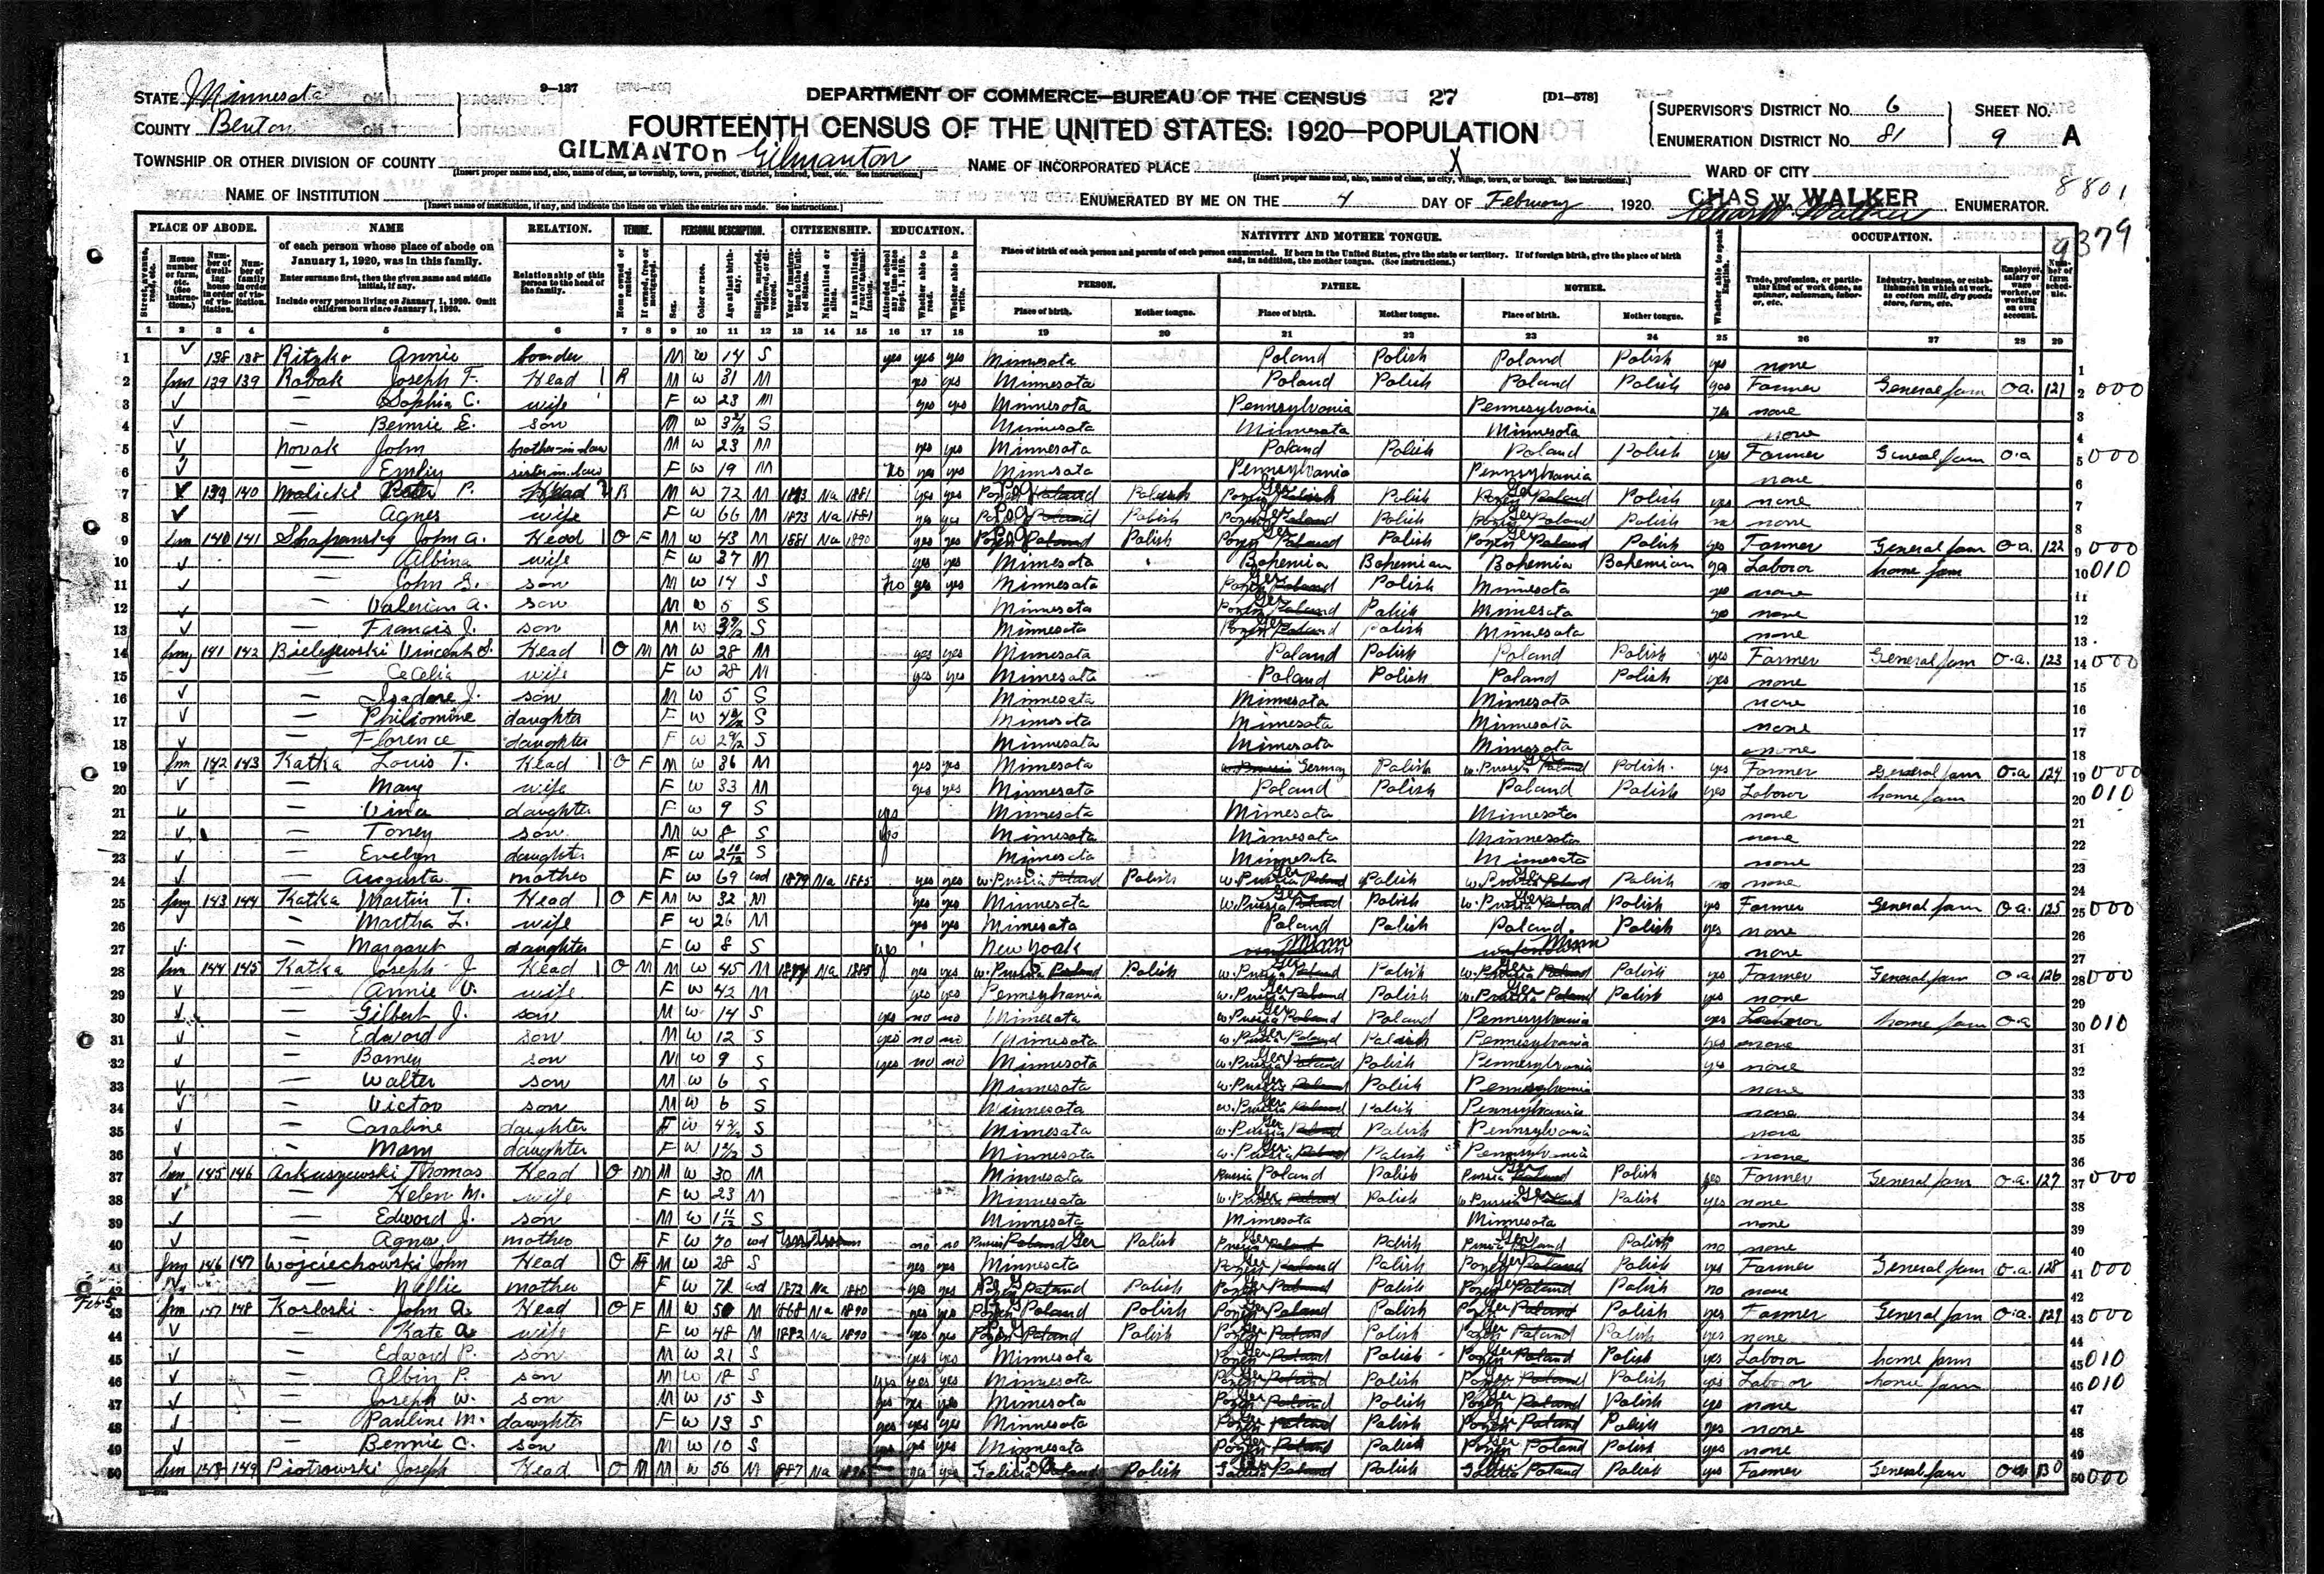 STATE Minnesota
COUNTY Benton
9-137
DEPARTMENT OF COMMERCE—BUREAU OF THE CENSUS 27 [D1-578]
FOURTEENTH CENSUS OF THE UNITED STATES: 1920—POPULATION
SUPERVISOR'S DISTRICT No. 6 SHEET No.
ENUMERATION DISTRICT No. 81 9 A
TOWNSHIP OR OTHER DIVISION OF COUNTY GILMANTOn Gilmanton NAME OF INCORPORATED PLACE X WARD OF CITY
[Insert proper name and, also, name of class, as township, town, precinct, district, hundred, beat, etc. See instructions.] [Insert proper name and, also, name of class, as city, village, town, or borough. See instructions.]
8801
NAME OF INSTITUTION ENUMERATED BY ME ON THE 4 DAY OF February, 1920. CHAS W. WALKER ENUMERATOR.
[Insert name of institution, if any, and indicate the lines on which the entries are made. See instructions.]
9379
PLACE OF ABODE. NAME RELATION. TENURE. PERSONAL DESCRIPTION. CITIZENSHIP. EDUCATION. NATIVITY AND MOTHER TONGUE. OCCUPATION.
of each person whose place of abode on January 1, 1920, was in this family.
Enter surname first, then the given name and middle initial, if any.
Include every person living on January 1, 1920. Omit children born since January 1, 1920.
Relationship of this person to the head of the family.
Place of birth of each person and parents of each person enumerated. If born in the United States, give the state or territory. If of foreign birth, give the place of birth and, in addition, the mother tongue. (See instructions.)
PERSON. FATHER. MOTHER.
Place of birth. Mother tongue. Place of birth. Mother tongue. Place of birth. Mother tongue.
1 2 3 4 5 6 7 8 9 10 11 12 13 14 15 16 17 18 19 20 21 22 23 24 25 26 27 28 29
1 138 138 Ritzko Annie boarder M W 14 S yes yes yes Minnesota Poland Polish Poland Polish yes none 1
2 fm 139 139 Robak Joseph F. Head 1 R M W 31 M yes yes Minnesota Poland Polish Poland Polish yes Farmer General farm O.a. 121 2 000
3 — Sophia C. wife F W 23 M yes yes Minnesota Pennsylvania Pennsylvania yes none 3
4 — Bennie E. son M W S Minnesota Minnesota Minnesota none 4
5 Novak John brother-in-law M W 23 M yes yes Minnesota Poland Polish Poland Polish yes Farmer General farm O.a 5 000
6 — Emily sister-in-law F W 19 M no yes yes Minnesota Pennsylvania Pennsylvania none 6
7 139 140 Malicki Peter P. Head R M W 72 M 1873 Na 1881 yes yes Pozen Poland Polish Pozen Ger Polish Pozen Ger Poland Polish yes none 7
8 — Agnes wife F W 66 M 1873 Na 1881 yes yes Poland Polish Pozen Ger Poland Polish Pozen Ger Poland Polish no none 8
9 fm 140 141 Shapansky John A. Head 1 O F M W 43 M 1881 Na 1890 yes yes Pozen Poland Polish Pozen Ger Poland Polish Pozen Ger Poland Polish yes Farmer General farm O.a. 122 9 000
10 — Albina wife F W 37 M yes yes Minnesota Bohemia Bohemian Bohemia Bohemian yes Laboror home farm 10 010
11 — John G. son M W 14 S no yes yes Minnesota Pozen Ger Poland Polish Minnesota yes none 11
12 — Valerian A. son M W 5 S Minnesota Pozen Ger Poland Polish Minnesota yes none 12
13 — Francis J. son M W S Minnesota Pozen Ger Poland Polish Minnesota none 13
14 fm 141 142 Bielejewski Vincent S. Head 1 O M M W 28 M yes yes Minnesota Poland Polish Poland Polish yes Farmer General farm O.a. 123 14 000
15 — Cecelia wife F W 28 M yes yes Minnesota Poland Polish Poland Polish yes none 15
16 — Isadore J. son M W 5 S Minnesota Minnesota Minnesota none 16
17 — Philiomine daughter F W S Minnesota Minnesota Minnesota none 17
18 — Florence daughter F W S Minnesota Minnesota Minnesota none 18
19 fm 142 143 Katka Louis T. Head 1 O F M W 36 M yes yes Minnesota W. Prussia Germany Polish W. Prussia Ger Poland Polish yes Farmer General farm O.a 124 19 000
20 — Mary wife F W 33 M yes yes Minnesota Poland Polish Poland Polish yes Laboror home farm 20 010
21 — Vina daughter F W 9 S yes Minnesota Minnesota Minnesota none 21
22 — Toney son M W 8 S yes Minnesota Minnesota Minnesota none 22
23 — Evelyn daughter F W 2 10/12 S Minnesota Minnesota Minnesota none 23
24 — Augusta mother F W 69 wd 1879 Na 1885 yes yes W. Prussia Poland Polish W. Prussia Ger Poland Polish W. Prussia Ger Poland Polish no none 24
25 fm 143 144 Katka Martin T. Head 1 O F M W 32 M yes yes Minnesota W. Prussia Ger Poland Polish W. Prussia Ger Poland Polish yes Farmer General farm O.a. 125 25 000
26 — Martha L. wife F W 26 M yes yes Minnesota Poland Polish Poland Polish yes none 26
27 — Margaret daughter F W 8 S yes New York Minn Minn none 27
28 fm 144 145 Katka Joseph J. Head 1 O M M W 45 M 1879 Na 1885 yes yes W. Prussia Poland Polish W. Prussia Ger Polish W. Prussia Ger Poland Polish yes Farmer General farm O.a. 126 28 000
29 — Annie V. wife F W 42 M yes yes Pennsylvania W. Prussia Ger Poland Polish W. Prussia Ger Poland Polish yes none 29
30 — Gilbert J. son M W 14 S yes no no Minnesota W. Prussia Ger Poland Poland Pennsylvania yes Laboror home farm O.a 30 010
31 — Edward son M W 12 S yes no no Minnesota W. Prussia Ger Poland Polish Pennsylvania yes none 31
32 — Barney son M W 9 S yes no no Minnesota W. Prussia Ger Poland Polish Pennsylvania yes none 32
33 — Walter son M W 6 S Minnesota W. Prussia Ger Poland Polish Pennsylvania none 33
34 — Victor son M W 6 S Minnesota W. Prussia Ger Poland Polish Pennsylvania none 34
35 — Caroline daughter F W S Minnesota W. Prussia Ger Poland Polish Pennsylvania none 35
36 — Mary daughter F W S Minnesota W. Prussia Ger Poland Polish Pennsylvania none 36
37 fm 145 146 Arkuszewski Thomas Head 1 O M M W 30 M Minnesota Russia Poland Polish Prussia Ger Poland Polish yes Farmer General farm O.a. 127 37 000
38 — Helen M. wife F W 23 M Minnesota W. Prussia Ger Poland Polish W. Prussia Ger Poland Polish yes none 38
39 — Edward J. son M W 1 11/12 S Minnesota Minnesota Minnesota none 39
40 — Agnes mother F W 70 wd no no Prussia Poland Ger Polish Prussia Ger Poland Polish Prussia Ger Poland Polish no none 40
41 fm 146 147 Wojciechowski John Head 1 O M W 28 S yes yes Minnesota Pozen Ger Poland Polish Pozen Ger Poland Polish yes Farmer General farm O.a. 128 41 000
42 — Nellie mother F W 72 wd 1872 Na 1880 yes yes Poland Polish Pozen Ger Poland Polish Pozen Ger Poland Polish no none 42
Feb 5 43 fm 147 148 Kosloski John A. Head 1 O F M W 50 M 1868 Na 1890 yes yes Pozen Poland Polish Pozen Ger Poland Polish Pozen Ger Poland Polish yes Farmer General farm O.a. 129 43 000
44 — Kate A. wife F W 48 M 1882 Na 1890 yes yes Pozen Poland Polish Pozen Ger Poland Polish Pozen Ger Poland Polish yes none 44
45 — Edward P. son M W 21 S yes yes Minnesota Pozen Ger Poland Polish Pozen Ger Poland Polish yes Laboror home farm 45 010
46 — Albin P. son M W 18 S yes yes yes Minnesota Pozen Ger Poland Polish Pozen Ger Poland Polish yes Laboror home farm 46 010
47 — Joseph W. son M W 15 S yes yes yes Minnesota Pozen Ger Poland Polish Pozen Ger Poland Polish yes none 47
48 — Pauline M. daughter F W 13 S yes yes yes Minnesota Pozen Ger Poland Polish Pozen Ger Poland Polish yes none 48
49 — Bennie C. son M W 10 S yes yes yes Minnesota Pozen Ger Poland Polish Pozen Ger Poland Polish yes none 49
50 fm 148 149 Piotrowski Joseph Head O M M W 56 M 1887 Na 1896 yes yes Galicia Poland Polish Galicia Poland Polish Galicia Poland Polish yes Farmer General farm O.a 130 50 000